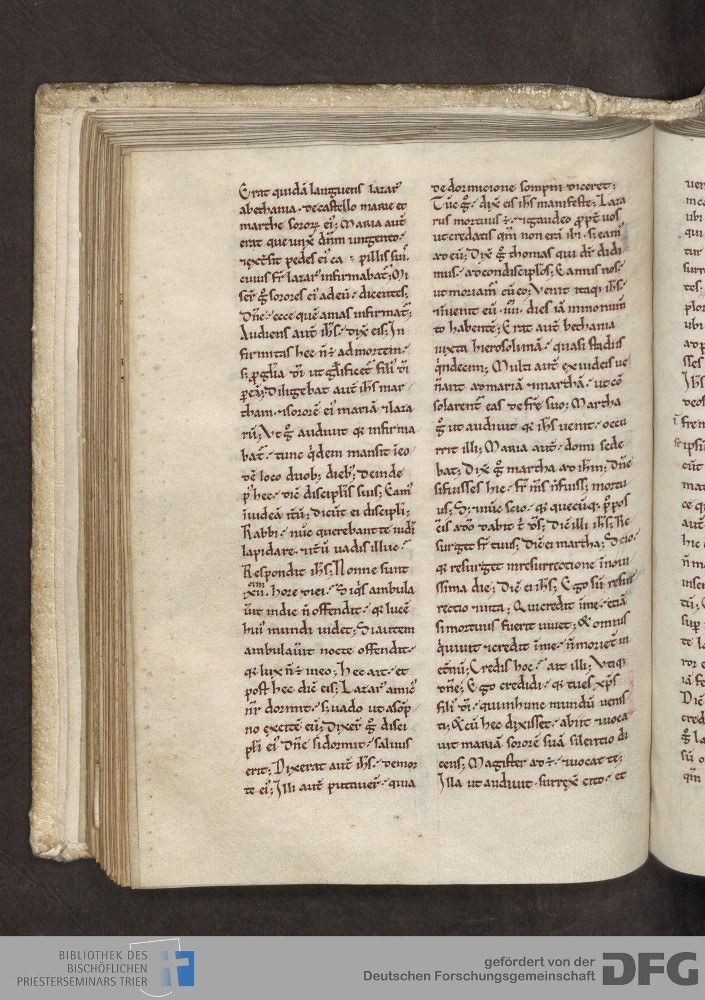 Erat quidā languens lazar᷒
abethania · decastello marie et
marthe sororū ei᷒; Maria aut̄
erat que unxit dn̄m ungento ·
⁊extsit pedes ei᷒ ca pillis suis ·
cuius fr̄ lazar᷒ infirmabat᷒; Mi
ser̄ g̊ sorores ei᷒ adeū · dicentes;
Dn̄e · ecce quē amas infirmat᷒;
Audiens aut̄ ih̄s · dixit eis; In
firmitas hec n̄ ē admortem ·
s; ꝓglīa dī ut glificet᷒ fili᷒ dī
ꝑeā; Diligebat aut̄ ih̄s mar
tham · ⁊sororē ei᷒ mariā ⁊laza
rū; Vt g̊ audivit qꝛ infirma
bat᷒ · tunc q̇dem mansit ineo
dē loco duob; dieb᷒; deinde
p᷒ hec · dic̄ discipl̄is suis; Eam᷒
iniudeā it̄ū; Dicūt ei discipl̄i;
Rabbi · nūc querebant te iudi
lapidare · ⁊it̄ū vadis illuc ·
Respondit ih̄s; Nonne sunt
xii · hore diei · Siq̇s ambula
v̄it indie n̄ offendit · qꝛ lucē
hui᷒ mundi videt; Siautem
ambulav̄it nocte offendit ·
qꝛ lux n̄ ē ineo; Hec ait · et
post hec dic̄ eis; Lazar᷒ amic᷒
nr̄ dormit · s; vado ut asōp
no excitē eū; Dixer̄ g̊ disci
pl̄i ei᷒ Dn̄e sidormit · salvus
erit; Dixerat aut̄ ih̄s · demor
te ei᷒; Illi aut̄ putaver̄ · quia
dedormicione sompni diceret;
Tūc g̊ · dix̄ eis ih̄s manifeste; Laza
rus mortuus ē · ⁊gaudeo ꝓpt̄ vos
ut credatis qm̄ non erā ibi · s; eam᷒
ad eū; Dix̄ g̊ thomas qui dr̄ didi
mus · ad condiscipl̄os; Eamus nos ·
ut moriam᷒ cū eo; Venit itaq; ih̄s ·
⁊invenit eū · iiii · dies iā inmonum̄
to habentē; Erat aut̄ bethania
iuxta hierosolimā · quasi stadiis
q̇ndecim; Multi aut̄ exiudeis ve
n̄ant admariā ⁊marthā · ut cō
solarent᷒ eas defrē suo; Martha
g̊ ut audivit qꝛ ih̄s venit · occu
rrit illi; Maria aut̄ · domi sede
bat; Dix̄ g̊ martha ad ih̄m; Dn̄e
sifuisses hic · fr̄ m̄s n̄fuiss; mortu
us; S; ⁊nūc scio · qꝛ quecūq; poposc̄
īs adō dabit t̄ ds̄; Dic̄ illi ih̄s; Re
surget fr̄ tuus; Dic̄ ei martha; Scio ·
qꝛ resurget inresurrectione inovi
ssima die; Dic̄ ei ih̄s; Ego sū resur
rectio ⁊vita; Qui credit inme · etiā
simortuus fuerit vivet; & omnis
q̇ vivit ⁊credit inme · n̄ moriet᷒ in
et̄nū; Credis hoc · ait illi; Vtiq;
dn̄e; Ego credidi · qꝛ tu es xp̄s
fili᷒ dī · qui inhunc mundū venis
ti; & cū hec dixisset · abiit ⁊voca
vit mariā sororē suā silentio di
cens; Magister ad ē · ⁊vocat te;
Illa ut audivit · surrex̄ cito · et
BIBLIOTHEK DES
BISCHÖFLICHEN
PRIESTERSEMINARS TRIER
gefördert von der
Deutschen Forschungsgemeinschaft
DFG